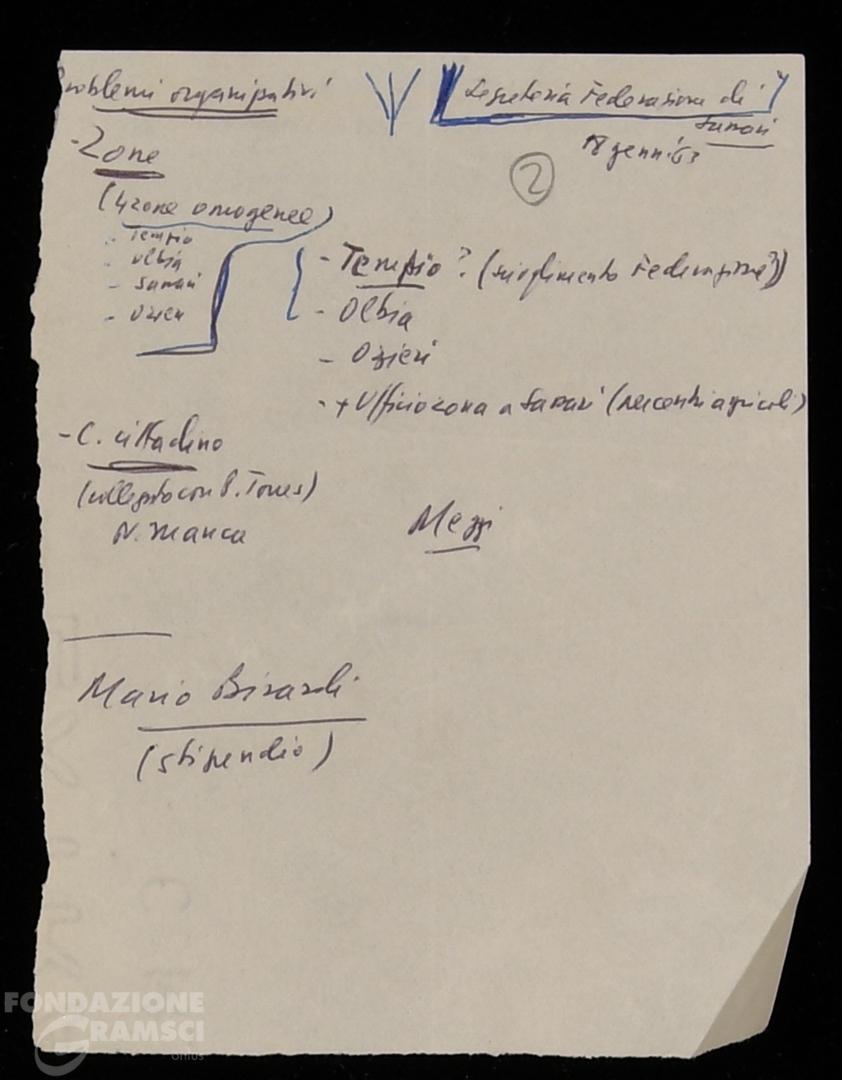 Problemi organizzativi
Segreteria Federazione di
Sassari
18 genn. '63
2
- Zone
(4 zone omogenee)
- Tempio
- Olbia
- Sassari
- Ozieri
- Tempio? (scioglimento Federazione?)
- Olbia
- Ozieri
- + Ufficio zona a Sassari (per centri agricoli)
- C. cittadino
(collegato con P. Torres)
N. Manca
Mezzi
Mario Birardi
(stipendio)
FONDAZIONE
GRAMSCI
onlus